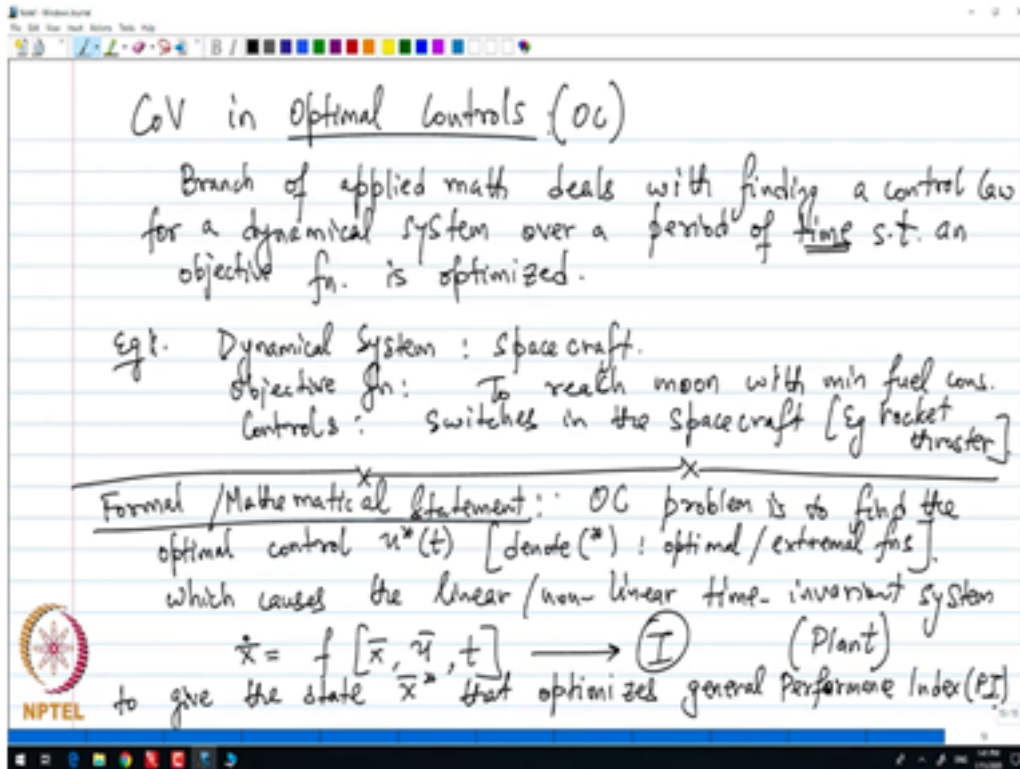 CoV in Optimal Controls : (OC)
Branch of applied math deals with finding a control law
for a dynamical system over a period of time s.t. an
objective fn. is optimized.
Eg:. Dynamical System : Spacecraft.
Objective fn: To reach moon with min fuel cons.
Controls : Switches in the spacecraft [Eg rocket
thruster]
Formal / Mathematical Statement : OC problem is to find the
optimal control u*(t) [denote (*) : optimal / extremal fns].
which causes the linear / non-linear time-invariant system
ẋ = f [x̄, ū, t] ⟶ Ⓘ (Plant)
to give the state x̄* that optimizes general Performane Index (PI)
NPTEL